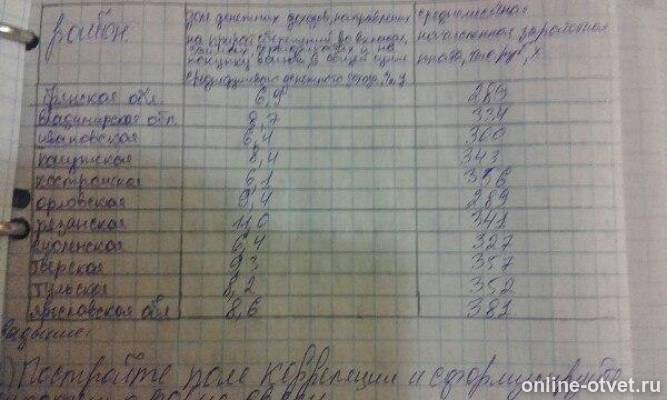 район
доля денежных доходов, направленных
на прирост сбережений во вкладах,
займах, сертификатах и на
покупку валюты, в общей сумме
среднедушевого денежного дохода, %, y
среднемесячная
начисленная заработная
плата, тыс. руб., x
Брянская обл. 6,9 289
Владимирская обл. 8,7 334
Ивановская 6,4 300
Калужская 8,4 343
Костромская 6,1 356
Орловская 9,4 289
Рязанская 11,0 341
Смоленская 6,4 327
Тверская 9,3 357
Тульская 8,2 352
Ярославская обл 8,6 381
Задание:
Постройте поле корреляции и сформулируйте
online-otvet.ru